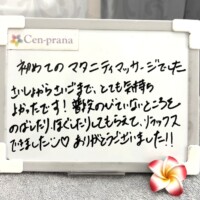 Cen-prana
初めてのマタニティマッサージでした
さいしょからさいごまで、とても気持ち
よかったです！普段のびていないところを
のばしたり、ほぐしたりしてもらえて、リラックス
できました♡ ありがとうございました!!